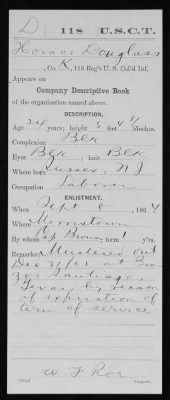 D | 118 | U.S.C.T.
Horace Douglass
Co. K, 118 Reg't U. S. Col'd Inf.
Appears on
Company Descriptive Book
of the organization named above.
DESCRIPTION.
Age 24 years; height 5 feet 4 3/4 inches.
Complexion Blk
Eyes Blk; hair Blk
Where born Sussex, N J
Occupation Laborer
ENLISTMENT.
When Sept, 1864
Where Morristown
By whom Cap Brown; term 1 y'rs.
Remarks: Mustered out
Texas by reason
of expiration of
term of service
W F Roe
Copyist.